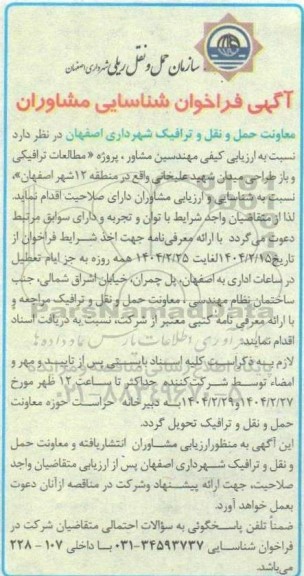 سازمان حمل و نقل ریلی شهرداری اصفهان
آگهی فراخوان شناسایی مشاوران
معاونت حمل و نقل و ترافیک شهرداری اصفهان در نظر دارد
نسبت به ارزیابی کیفی مهندسین مشاور ، پروژه « مطالعات ترافیکی
و باز طراحی میدان شهید علیخانی واقع در منطقه ۱۲ شهر اصفهان»،
نسبت به شناسایی و ارزیابی مشاوران دارای صلاحیت اقدام نماید.
لذا از متقاضیان واجد شرایط با توان و تجربه و دارای سوابق مرتبط
دعوت می‌گردد با ارائه معرفی‌نامه جهت اخذ شرایط فراخوان از
تاریخ ۱۴۰۴/۲/۱۵ لغایت ۱۴۰۴/۲/۲۵ همه روزه به جز ایام تعطیل
در ساعات اداری به اصفهان، پل چمران، خیابان اشراق شمالی، جنب
ساختمان نظام مهندسی ، معاونت حمل و نقل و ترافیک مراجعه و
با ارائه معرفی نامه کتبی معتبر از شرکت، نسبت به دریافت اسناد
اقدام نمایند.
لازم به ذکر است کلیه اسناد بایستی پس از تایید و مهر و
امضاء توسط شرکت‌کننده حداکثر تا ساعت ۱۲ ظهر مورخ
۱۴۰۴/۲/۲۷ و ۱۴۰۴/۲/۲۹ به دبیرخانه حراست حوزه معاونت
حمل و نقل و ترافیک تحویل گردد.
این آگهی به منظور ارزیابی مشاوران انتشار یافته و معاونت حمل
و نقل و ترافیک شهرداری اصفهان پس از ارزیابی متقاضیان واجد
صلاحیت، جهت ارائه پیشنهاد و شرکت در مناقصه از آنان دعوت
بعمل خواهد آورد.
ضمناً تلفن پاسخگوئی به سؤالات احتمالی متقاضیان شرکت در
فراخوان شناسایی ۳۴۵۹۳۷۳۷-۰۳۱ با داخلی ۱۰۷ - ۲۲۸
می‌باشد.
ParsNamadData